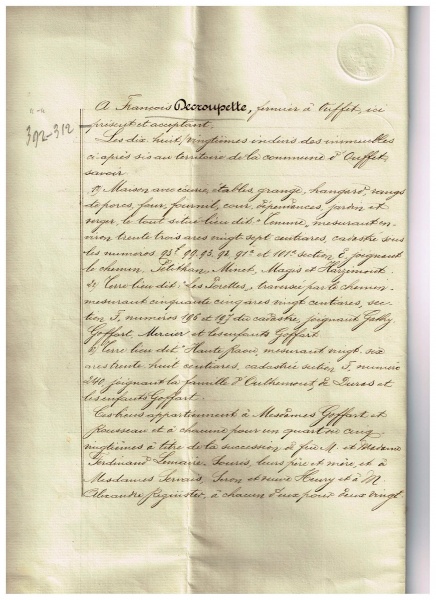 392-312
A François Decroupette, fermier à Ouffet, ici
présent et acceptant,
Les dix huit vingtièmes indivis des immeubles
ci après sis au territoire de la commune d'Ouffet,
savoir
1) Maison avec écurie, étables, grange, hangard, rangs
de porcs, four, fournil, cour, dépendances, jardin et
verger, le tout situé lieu dit: mesurant en-
viron trente trois ares vingt sept centiares, cadastré sous
les numéros section E, joignant
le chemin, Minet, Magis et
2) Terre lieu dit: Les traversée par le chemin
mesurant cinquante cinq ares vingt centiares, sec-
tion F, numéros 196 et 197 du cadastre, joignant
Goffart, Mercier et les enfants Goffart.
3) Terre lieu dit mesurant vingt six
ares trente huit centiares, cadastrée section F, numéro
240, joignant la famille d'Oultremont, de Duras et
les enfants Goffart.
Ces biens appartiennent à Mesdames Goffart et
Rousseau et à chacune pour un quart ou cinq
vingtièmes à titre de la succession de feu M. et Madame
Ferdinand Lemaire, leurs père et mère, et à
Mesdames Servais, et veuve Henry et à M.
Alexandre Reginster, à chacun d'eux pour deux vingt